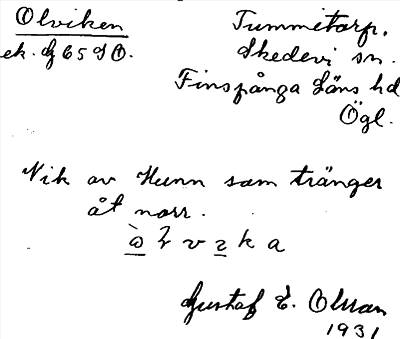 Olviken
ek. bl 65 9 D.
Tummetorp.
Skedevi sn.
Finspånga läns hd
Ögl.
Vik av Hunn som tränger
åt norr.
Gustaf E. Olsson
1931